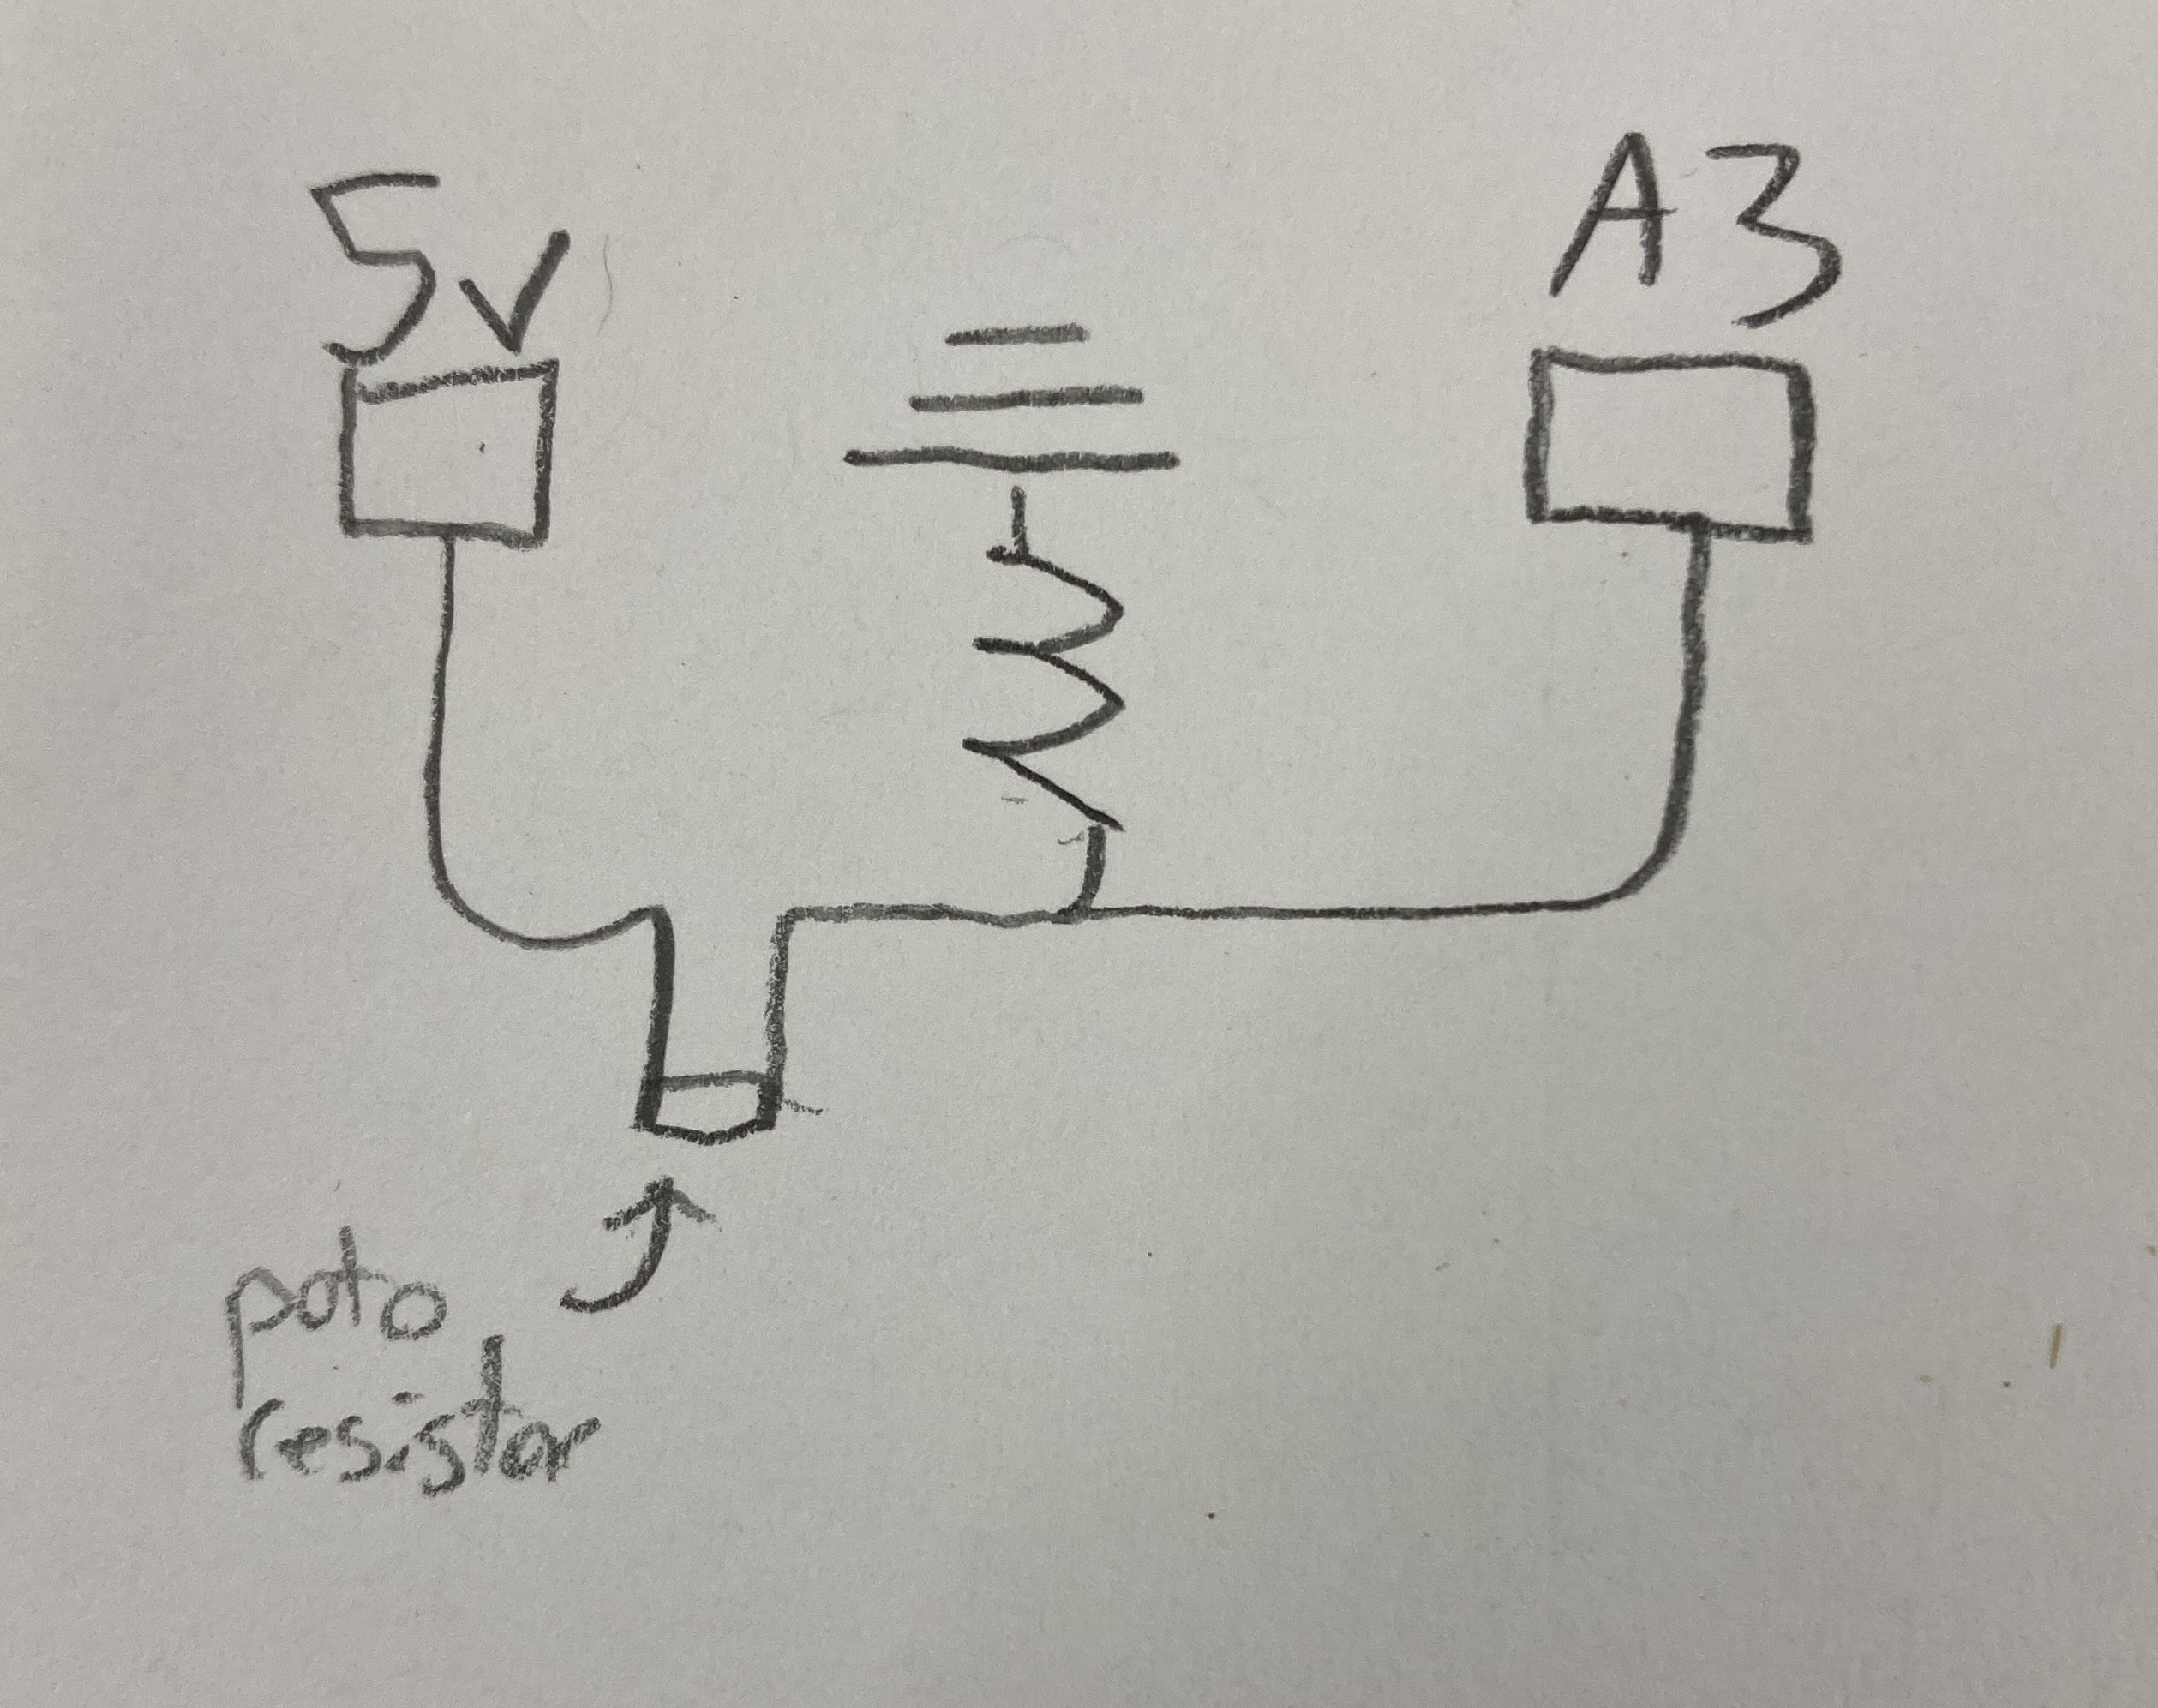 5V
A3
poto
resistor